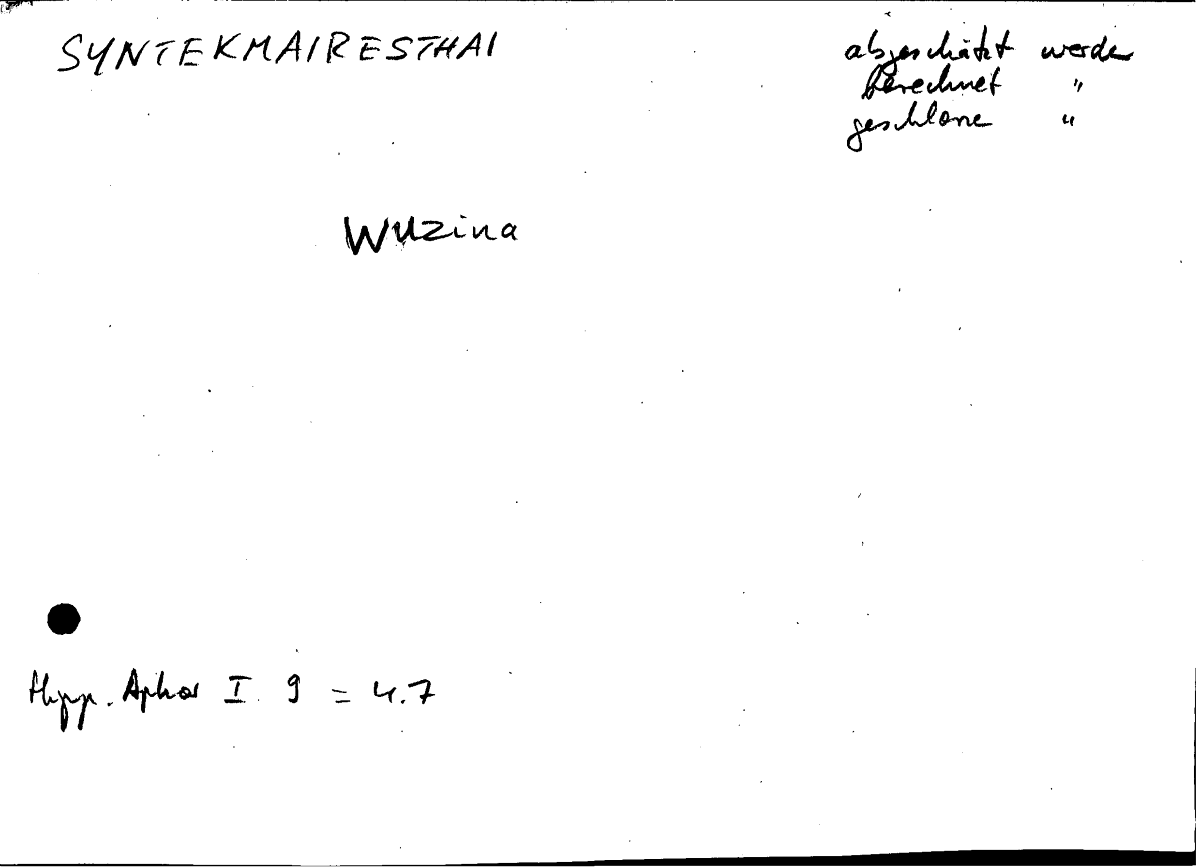 SYNTEKMAIRESTHAI
abgeschätzt werden
berechnet "
geschlossen "
wuzina
Hipp. Aphor I 9 = 4.7